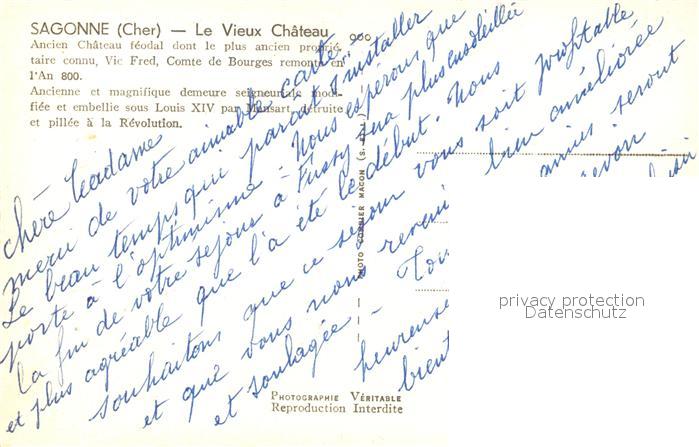 SAGONNE (Cher) — Le Vieux Château
900
Ancien Château féodal dont le plus ancien proprié-
taire connu, Vic Fred, Comte de Bourges remonte en
l'An 800.
Ancienne et magnifique demeure seigneuriale modi-
fiée et embellie sous Louis XIV par Mansart, détruite
et pillée à la Révolution.
Chère Madame
merci de votre aimable carte -
Le beau temps qui paraît s'installer
porte à l'optimisme - Nous espérons que
la fin de votre séjour à Fussy sera plus ensoleillée
et plus agréable que l'a été le début. Nous
souhaitons que ce séjour vous soit profitable
et que vous nous revenez bien améliorée
et soulagée - Tous amis seront
heureuse revoir
bient
PHOTO COMBIER MACON (S.-&-L.)
PHOTOGRAPHIE VÉRITABLE
Reproduction Interdite
privacy protection
Datenschutz